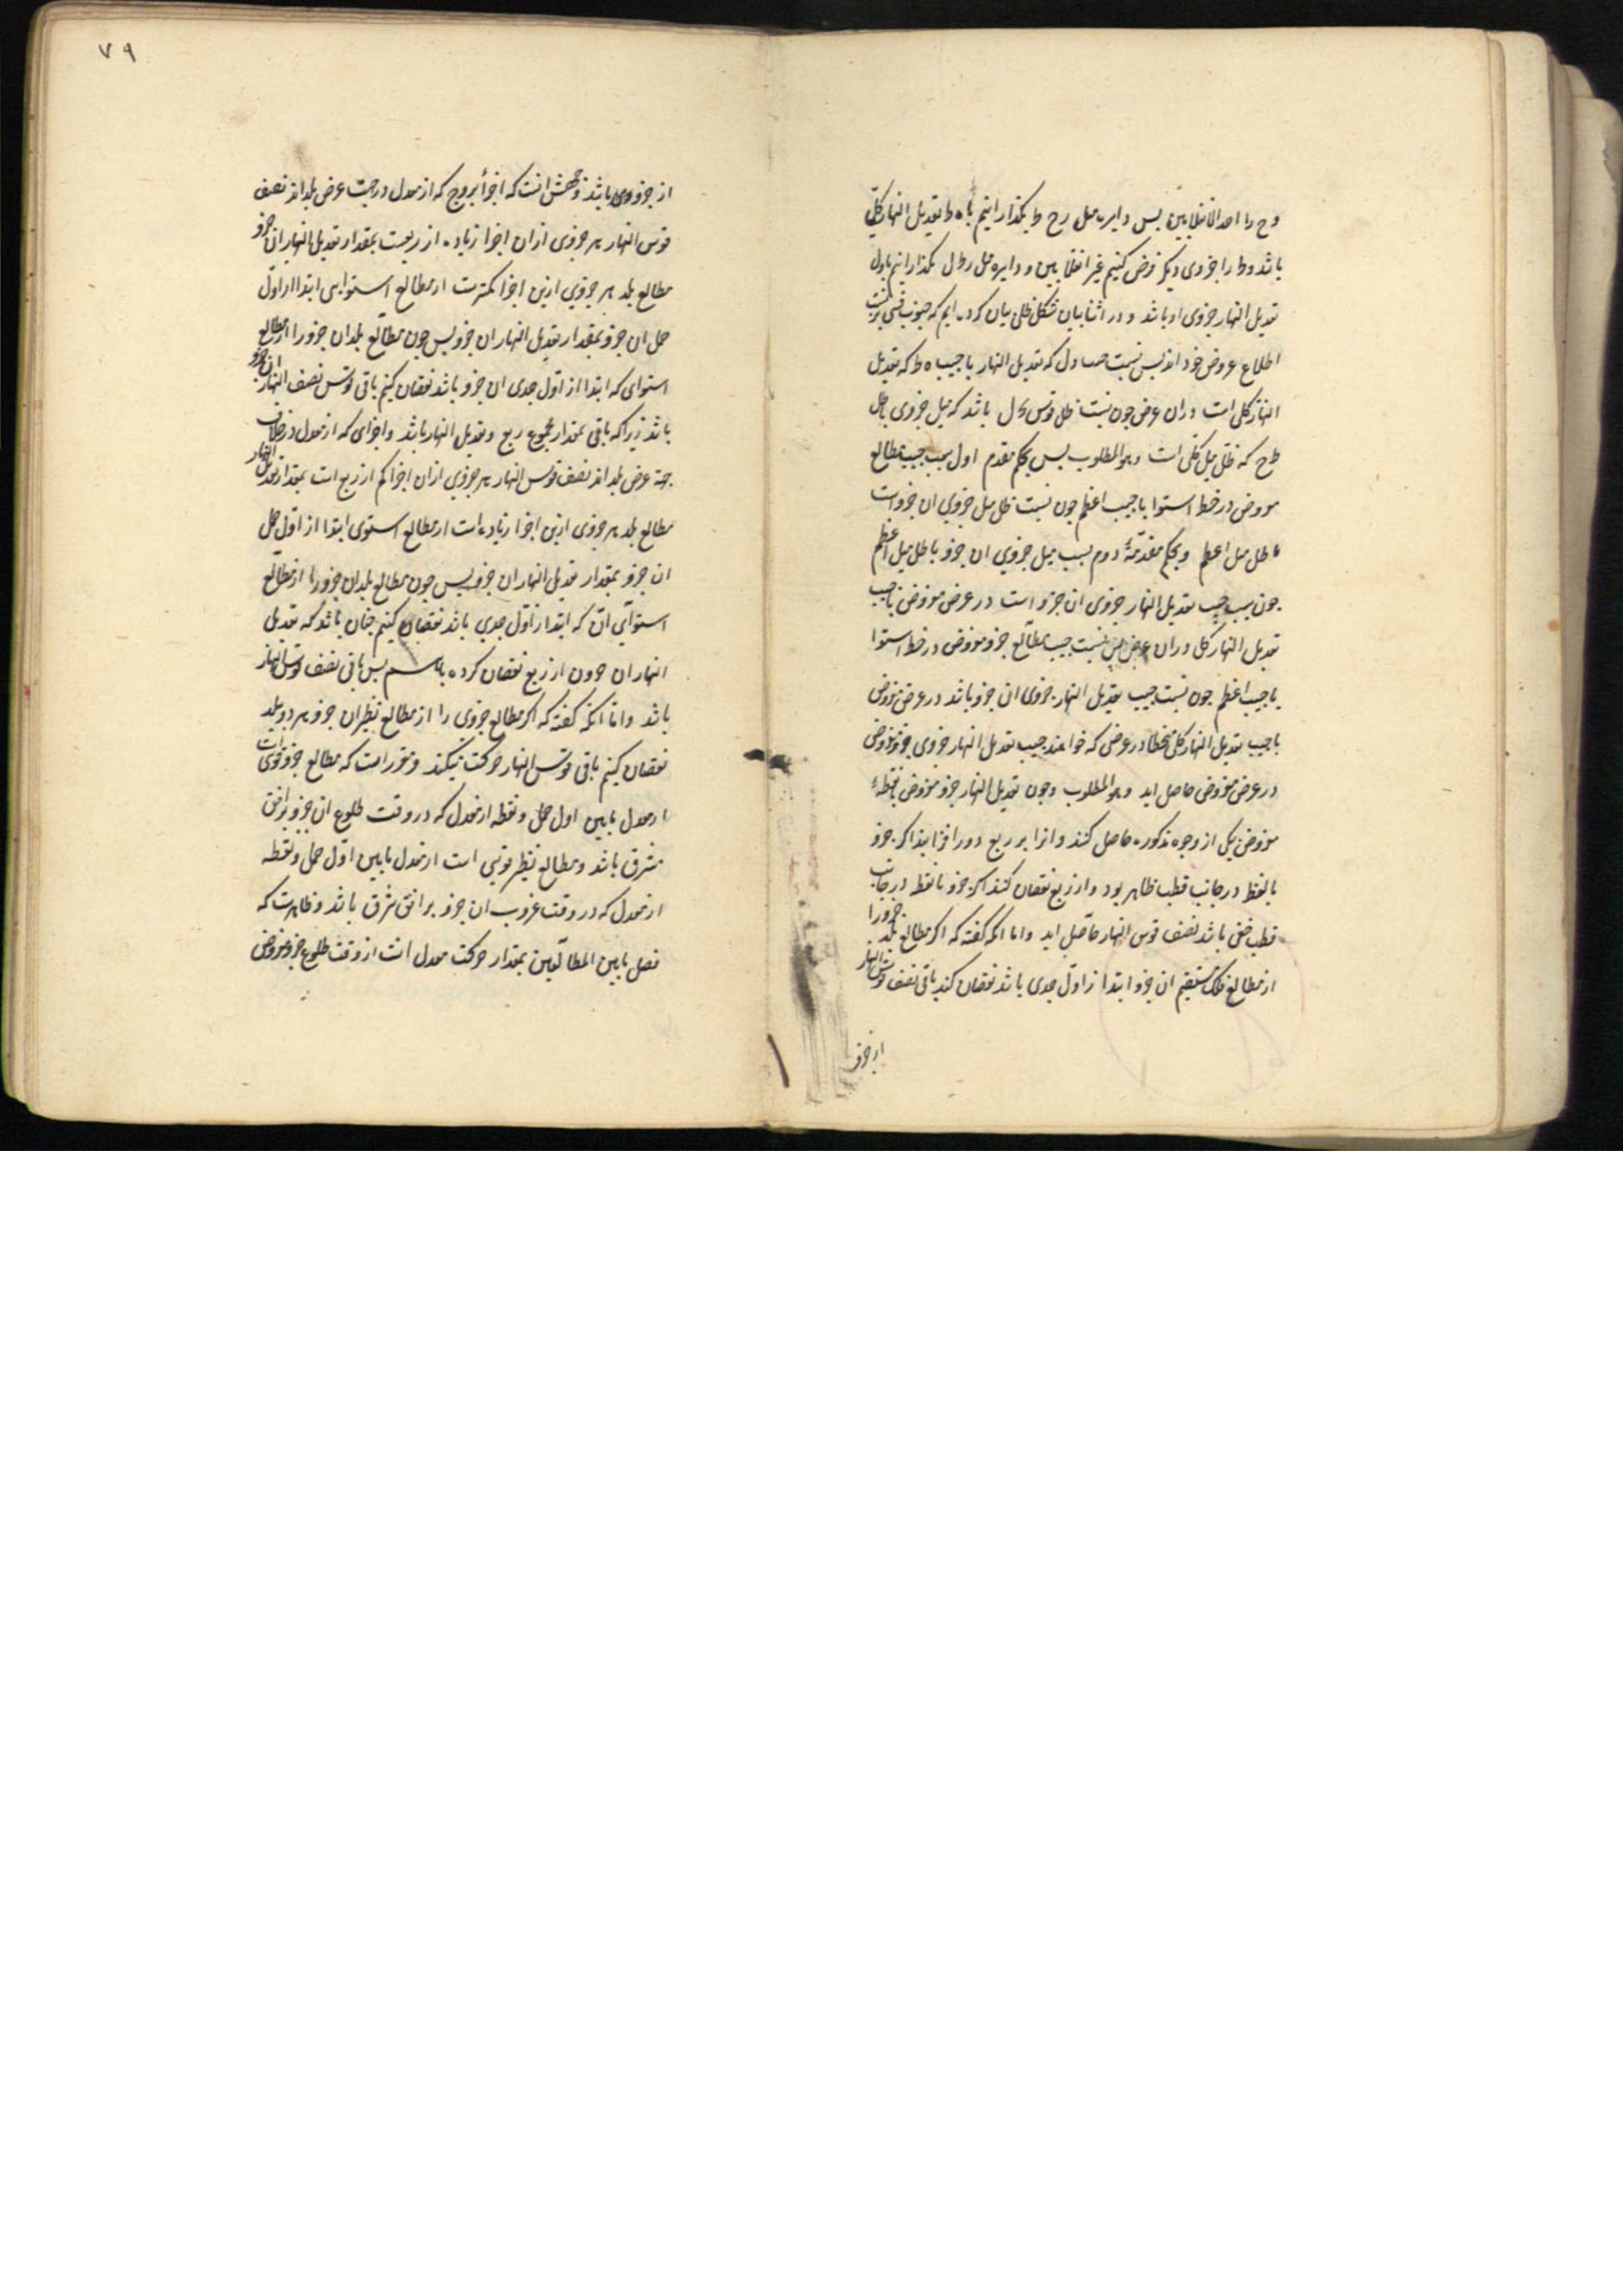 وح را احد الانقلابین پس دایره میل رح ط بگذرانیم تا ه ط تعدیل النهار کلی
باشد و ط را جزوی دیگر فرض کنیم غیر انقلابین و دایره میل رطل بگذرانیم تا ول
تعدیل النهار جزوی او باشد و در اثنا بیان شکل ظلی بیان کرده ایم که جیوب قسی بر نسبت
اظلاع عروض خود اند پس نسبت جیب اول که تعدیل النهار با جیب ه ط که تعدیل
النهار کلی است در ان عرض چون نسبت ظل قوس ل باشد که میل جزوی با ظل
ط ح که ظل میل کلی است و هو المطلوب پس بحکم مقدم اول نسبت جیب مطالع
مفروض در خط استوا با جیب اعظم چون نسبت ظل میل جزوی ان جزو است
با ظل میل اعظم و بحکم مقدمهٔ دوم نسبت میل جزوی ان جزو با ظل میل اعظم
چون نسبت جیب تعدیل النهار جزوی ان جزو است در عرض مفروض با جیب
تعدیل النهار کلی در ان عرض پس نسبت جیب مطالع جزو مفروض در خط استوا
با جیب اعظم چون نسبت جیب تعدیل النهار جزوی ان جزو باشد در عرض مفروض
با جیب تعدیل النهار کلی در عرضی که خواهند جیب تعدیل النهار جزوی جزو مفروض
در عرض مفروض حاصل اید و هو المطلوب و چون تعدیل النهار جزو مفروض یا نقطهٔ
مفروض بیکی از وجوه مذکوره حاصل کنند و انرا بر ربع دور افزایند اگر جزو
یا نقطه در جانب قطب ظاهر بود و از ربع نقصان کنند اگر جزو یا نقطه در جانب
قطب خفی باشد نصف قوس النهار حاصل اید و اما انکه گفته که اگر مطالع بلد جزو را
از مطالع فلک مستقیم ان جزو ابتدا از اول جدی باشد نقصان کند باقی نصف قوس النهار
از جزو
٧٩
از جزوی باشد وجهش انست که اجزأ بروج که از معدل در جهت عرض بلد اند نصف
قوس النهار هر جزوی از ان اجزا زیاده از ربعست بمقدار تعدیل النهار ان جزو
مطالع بلد هر جزوی ازین اجزا کمترست از مطالع استوایی ابتدا از اول
حمل ان جزو بمقدار تعدیل النهار ان جزو پس چون مطالع بلد ان جزو را از مطالع
استوای که ابتدا از اول جدی ان جزو باشد نقصان کنیم باقی قوس نصف النهار ان جزو
باشد زیرا که باقی بمقدار مجموع ربع و تعدیل النهار باشد و اجزای که از معدل در خلاف
جهة عرض بلد اند نصف قوس النهار هر جزوی از ان اجزا کم از ربع است بمقدار تعدیل النهار
مطالع بلد هر جزوی ازین اجزا زیاده است از مطالع استوی ابتدا از اول حمل
ان جزو بمقدار تعدیل النهار ان جزو پس چون مطالع بلد ان جزو را از مطالع
استوایی ان که ابتدا از اول جدی باشد نقصان کنیم چنان باشد که تعدیل
النهار ان جزو از ربع نقصان کرده باشیم پس باقی نصف قوس النهار
باشد و اما انکه گفته که اگر مطالع جزوی را از مطالع نظیر ان جزو هر دو ببلد
نقصان کنیم باقی قوس النهار حرکت میکند و مقرر است که مطالع جزو قوسی است
از معدل مابین اول حمل و نقطه از معدل که در وقت طلوع ان جزو بر افق
مشرق باشد و مطالع نظیر قوسی است از معدل مابین اول حمل و نقطه
از معدل که در وقت غروب ان جزو بر افق مشرق باشد و ظاهرست که
فصل مابین المطالعین بمقدار حرکت معدل است از وقت طلوع جزو مفروض